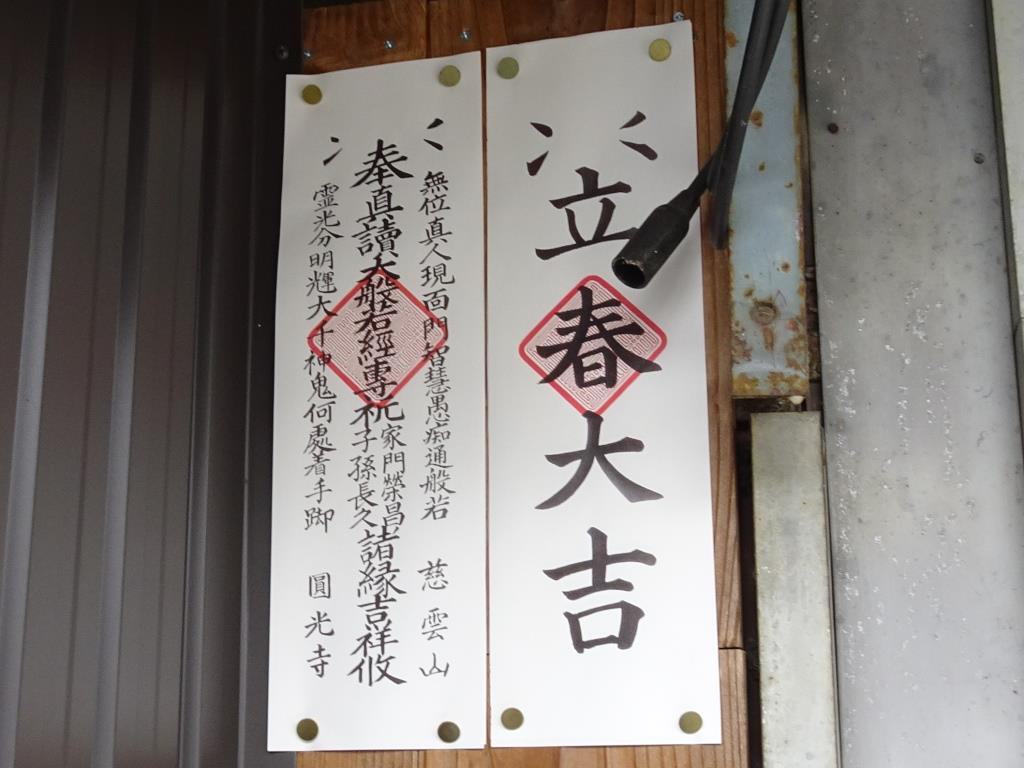 立春大吉
無位真人現面門智慧愚痴通般若 慈雲山
奉真讀大般若經專祝家門榮昌子孫長久諸縁吉祥攸
霊光分明輝大千神鬼何處着手脚 圓光寺